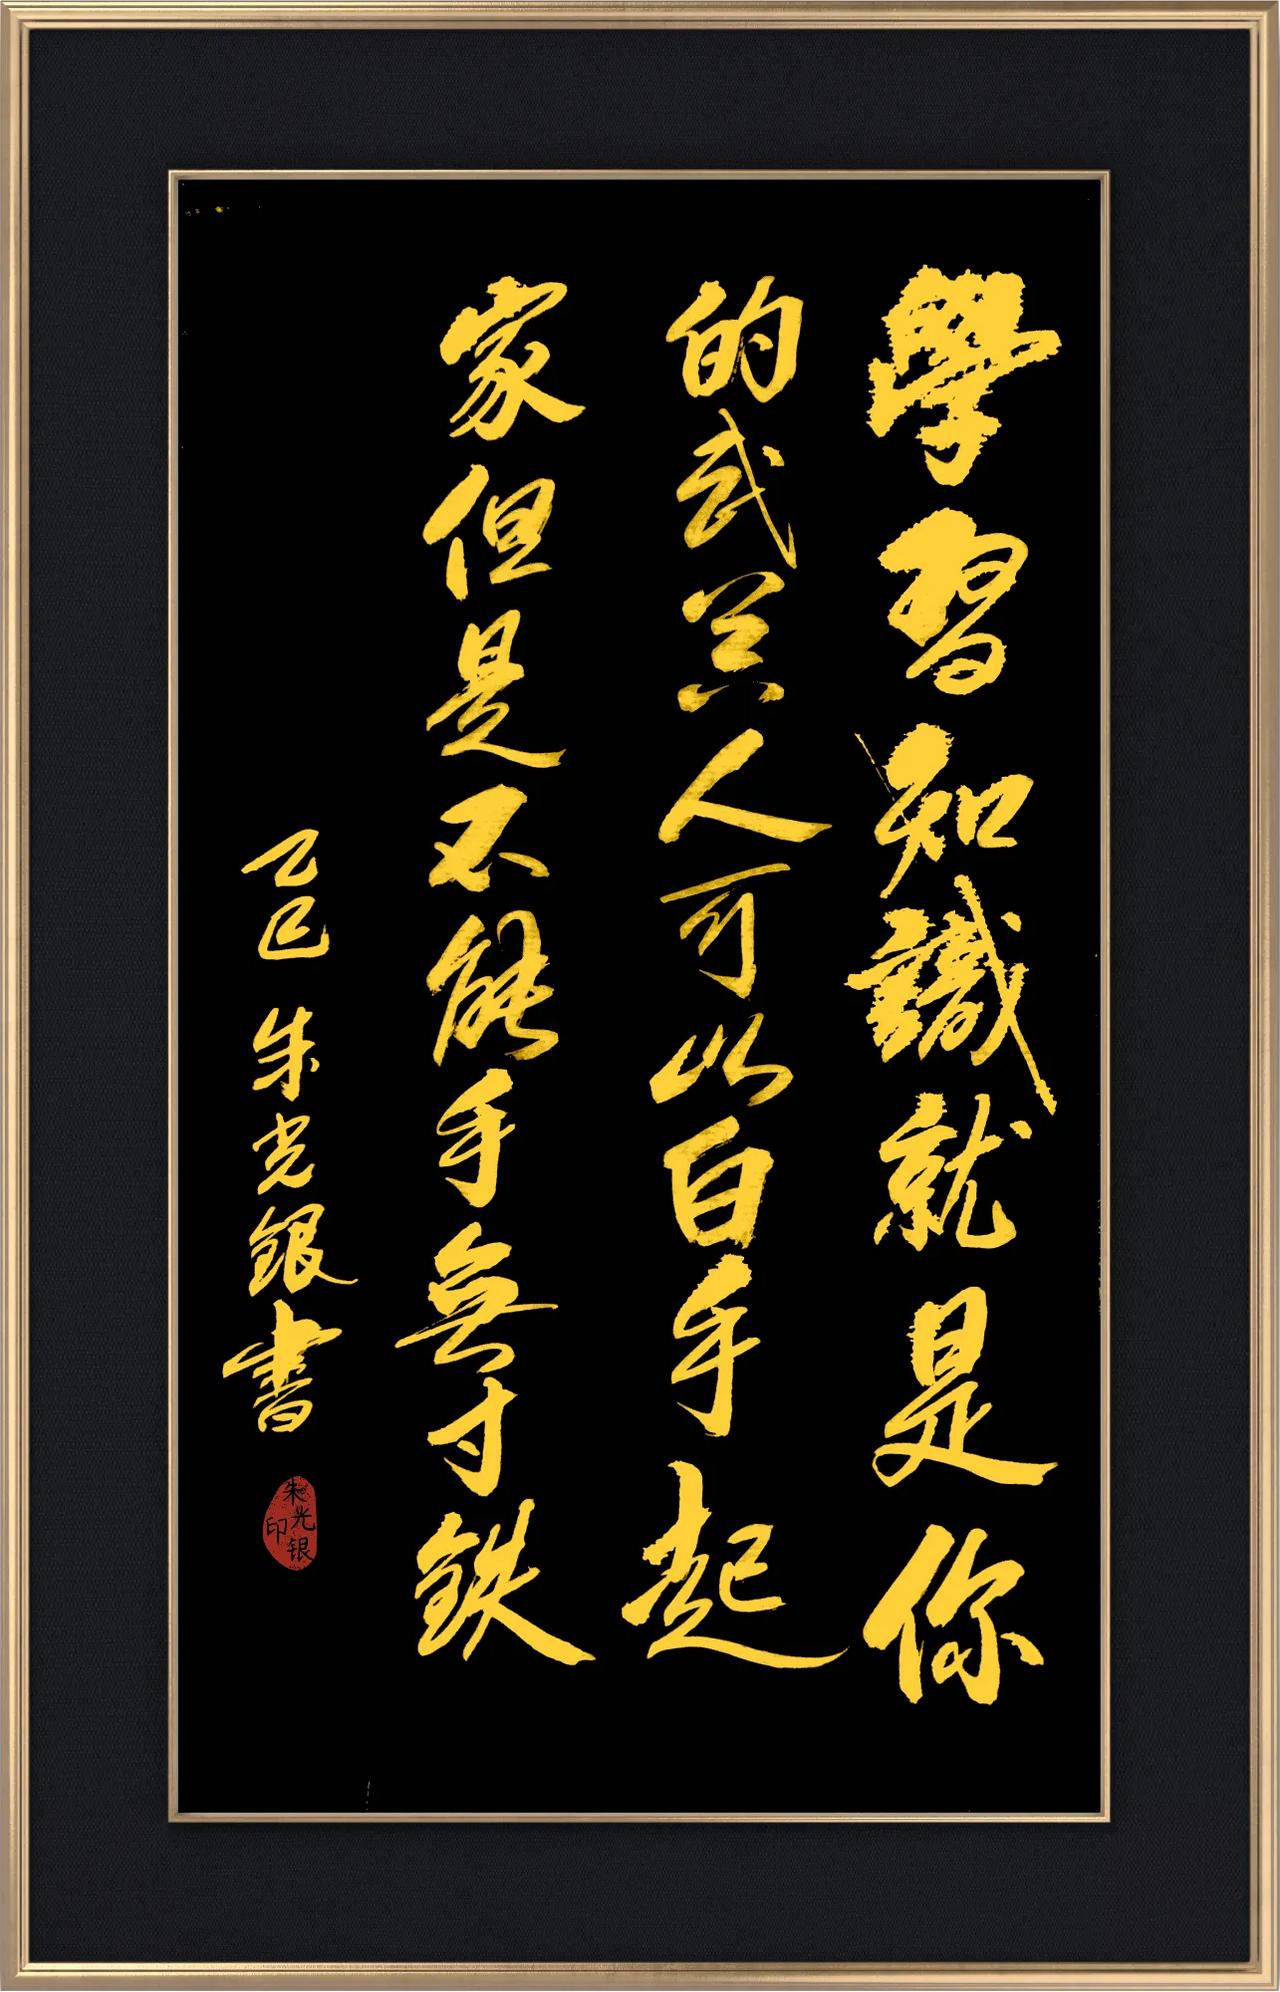 學習知識就是你
的武器人可以白手起
家但是不能手無寸鉄
乙巳 朱光银書
朱光银印